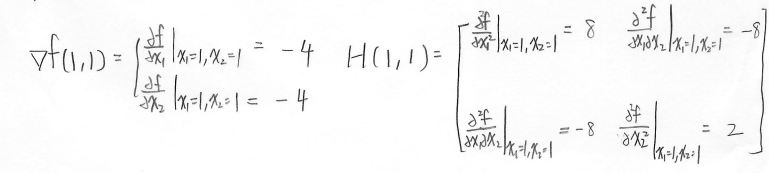 ∇f(1,1) = [ ∂f/∂x₁ |x₁=1,x₂=1 = -4 H(1,1) = [ ∂²f/∂x₁² |x₁=1,x₂=1 = 8 ∂²f/∂x₁∂x₂ |x₁=1,x₂=1 = -8 ]
∂f/∂x₂ |x₁=1,x₂=1 = -4
∂²f/∂x₁∂x₂ |x₁=1,x₂=1 = -8 ∂²f/∂x₂² |x₁=1,x₂=1 = 2